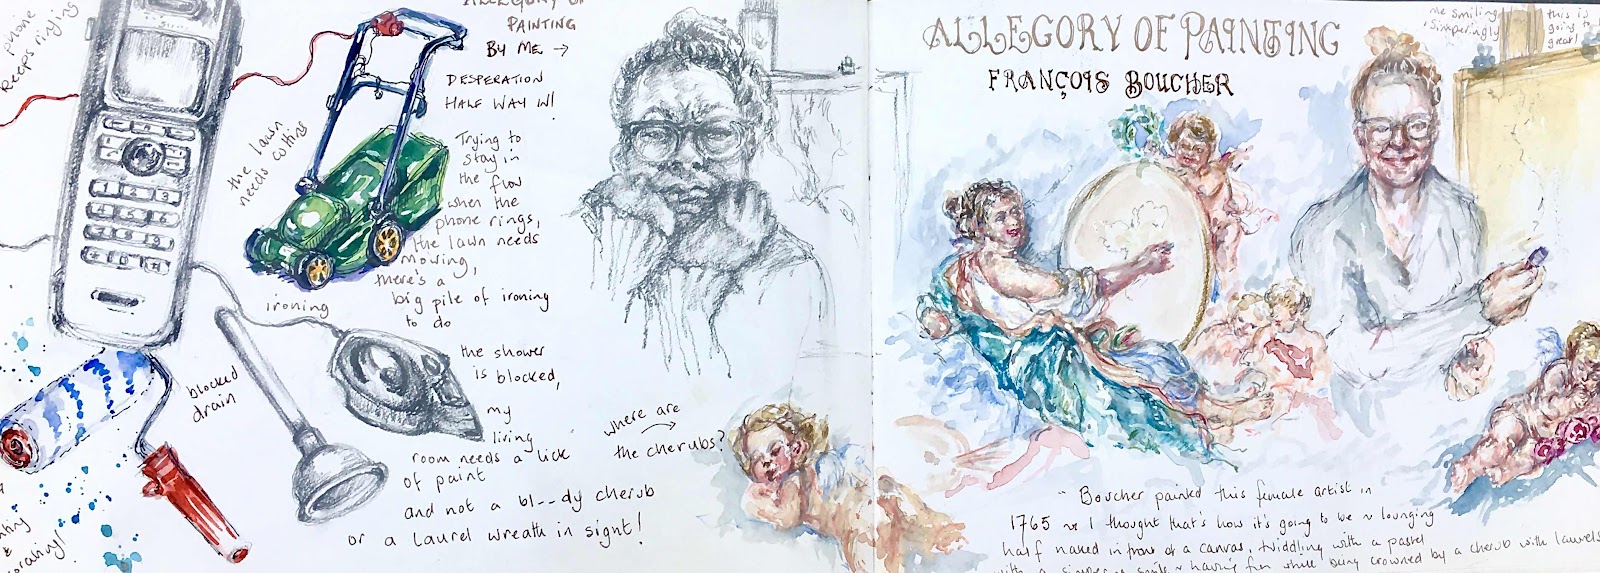 phone
keeps ringing
the lawn
needs cutting
ALLEGORY OF
PAINTING
BY ME →
DESPERATION
HALF WAY IN!
Trying to
stay in
the flow
when the
phone rings,
the lawn needs
mowing,
there's a
big pile of ironing
to do
the shower
is blocked,
my
living
room needs a lick
of paint
and not a bl--dy cherub
or a laurel wreath in sight!
ironing
blocked
drain
where are
the cherubs?
ALLEGORY OF PAINTING
FRANÇOIS BOUCHER
me smiling
simperingly
this is
going to be
great!
"Boucher painted this female artist in
1765 & I thought that's how it's going to be ~ lounging
half naked in front of a canvas, twiddling with a pastel
with a simpering smile & having fun while being crowned by a cherub with laurels